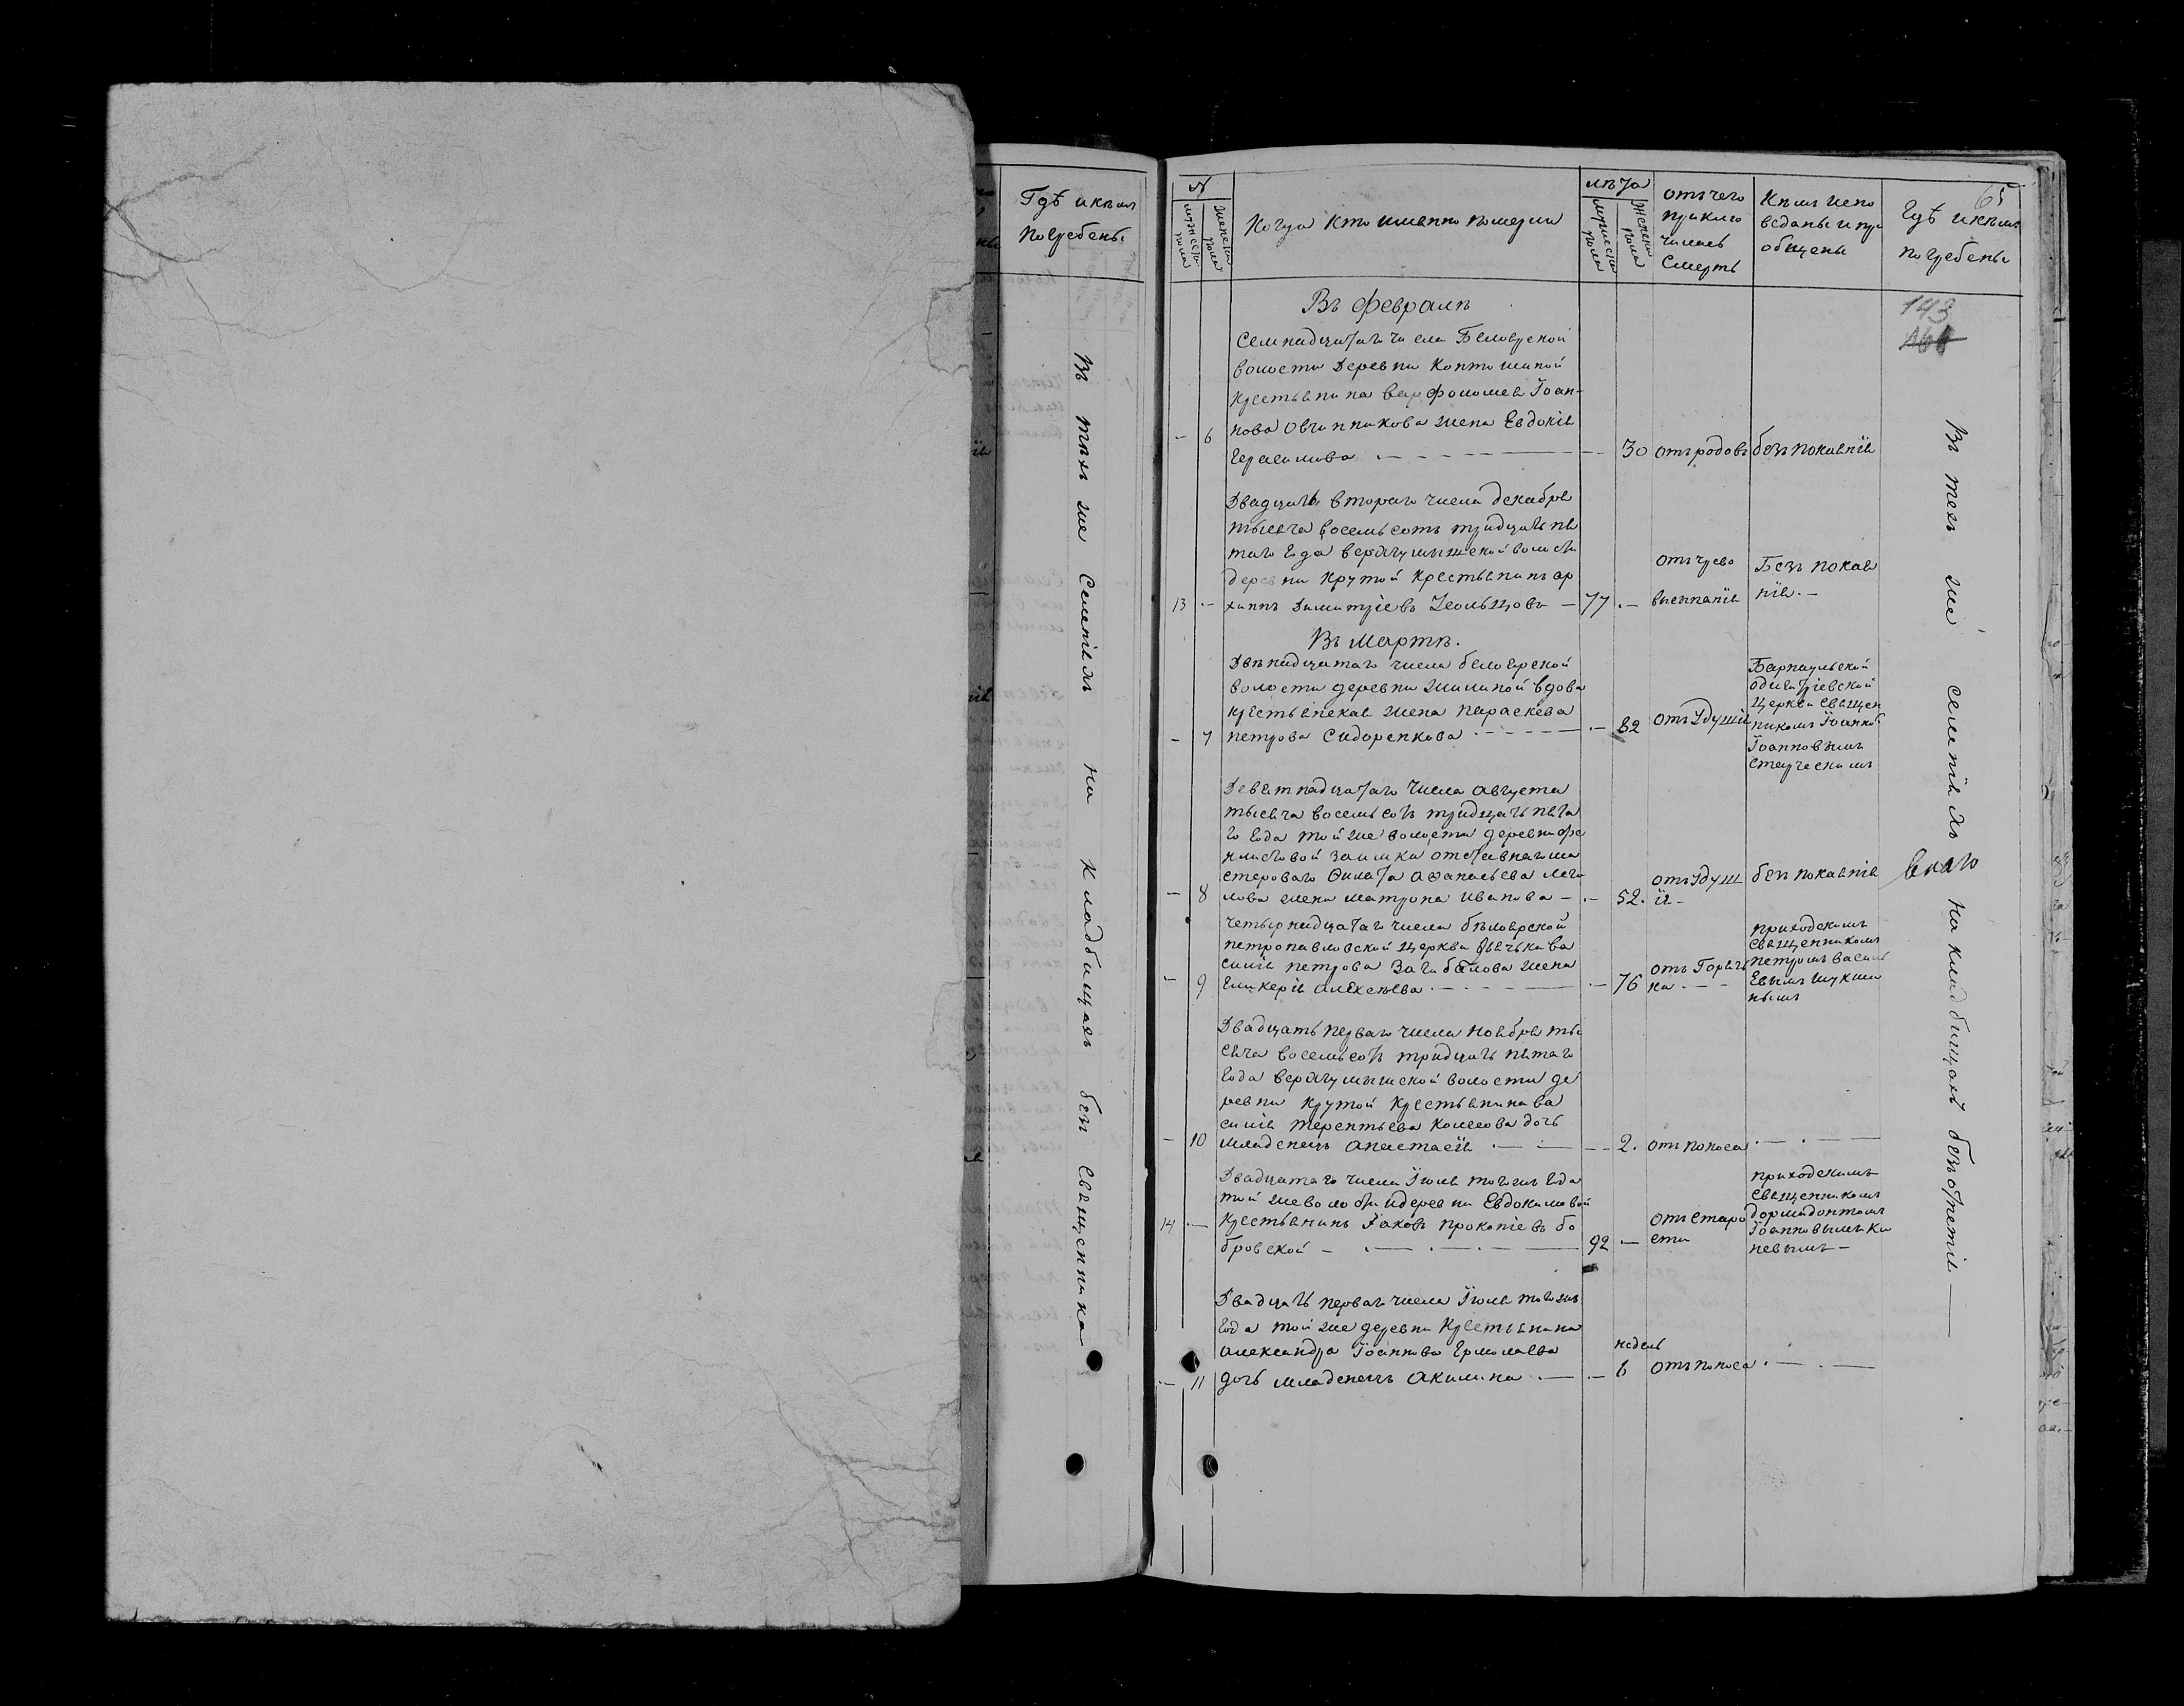 Гдѣ и кѣмъ
погребены
Въ тѣхъ же селеніяхъ на кладбищахъ без священника
65
№
мужеска пола
женска пола
Когда кто именно померли
лѣта
мужеска пола
женска пола
отъ чего
приклю
чилась
смерть
Кѣмъ испо
веданы и при
общены
Гдѣ и кѣмъ
погребены
143
Въ Февралѣ
Семнадцатаго числа Белоярской
волости деревни
крестьянина Варфоломея Іоан-
нова Овчинникова жена Евдокія
- 6
Герасимова - - 30 отъ родовъ безъ покаянія
Двадцать втораго числа декабря
тысяча восемьсотъ тридцать пя
таго года верхчумышской волости
деревни Крутой крестьянинъ ар
хипъ Димитріевъ - 77 . -
13 . -
отъ чрево
Безъ покая
нія . -
Въ Мартѣ.
Двѣнадцатаго числа белоярской
волости деревни Жилиной вдова
крестьянская жена параскева
- 7 петрова Сидоренкова . - 82 отъ удушія
Барнаульской
одигитріевской
церкви священ
никомъ Іоанномъ
Іоанновымъ
Девятнадцатаго числа августа
тысяча восемьсотъ тридцать пята
го года той же волости деревни
заимки отставнаго ма
стероваго Филата Афанасьева
- 8 жена матрона Иванова - . - 52.
отъ удуш
ія -
без покаянія
Четырнадцатаго числа бѣлоярской
петропавловской церкви дьячька Ва
силія петрова жена
- 9 Гликерія Алексѣева . - . - 76
отъ Горячь
ки . - -
приходскимъ
священникомъ
петромъ Василь
евымъ Шукши
нымъ
Двадцать перваго числа Ноября ты
сяча восемьсотъ тридцать пятаго
года верхчумышской волости де
ревни Крутой крестьянина Ва
силія терентьева дочь
- 10 младенецъ анастасія . - - - 2. отъ поноса . - . -
Двадцатаго числа Іюля того жъ года
той же волости деревни Евдокимовой
14 . - крестьянинъ Іаковъ прокопіевъ бо
бровской - . - . - . - 92 . -
отъ старо
сти
приходскимъ
священникомъ
дормидонтомъ
Іоанновымъ
Двадцать перваго числа Іюля того жъ
года той же деревни крестьянина
Александра Іоаннова Ермолаева
. - 11 дочь младенецъ Акилина . - . -
недель
6 отъ поноса . - . -
Въ техъ же селеніяхъ на кладбищахъ безъ отпетія